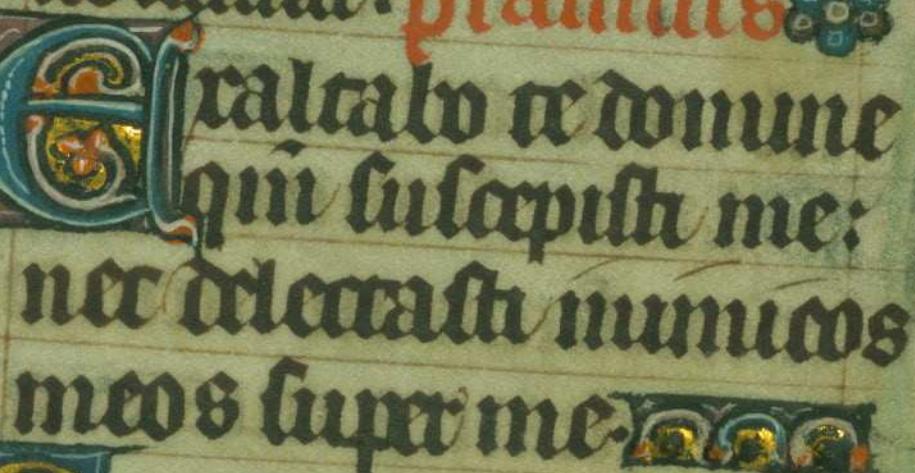 psalmus
Exaltabo te domine
qm̄ suscepisti me:
nec delectasti inimicos
meos super me.